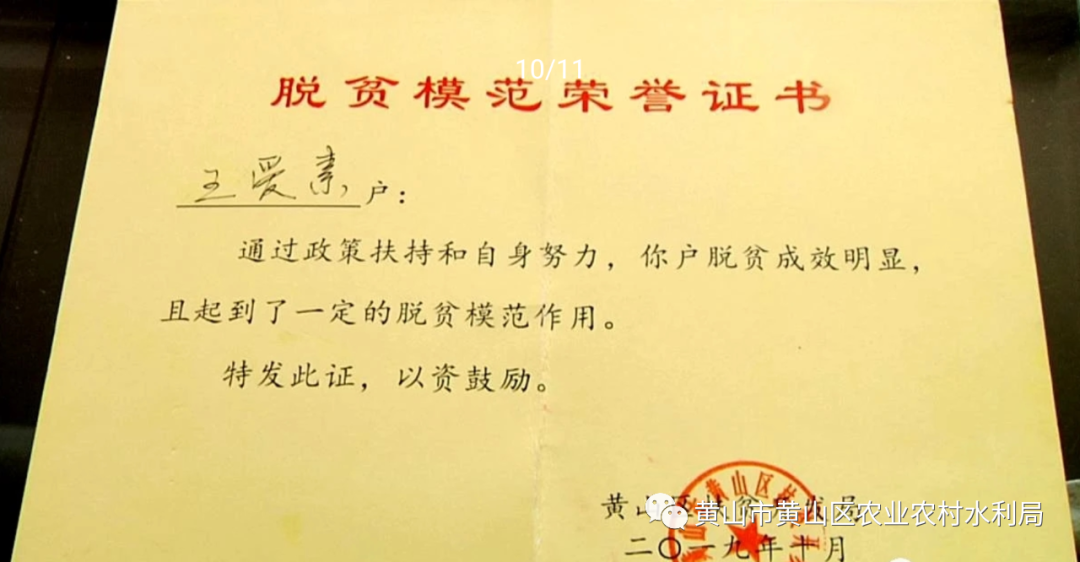 10/11
脱贫模范荣誉证书
王爱素户：
通过政策扶持和自身努力，你户脱贫成效明显，
且起到了一定的脱贫模范作用。
特发此证，以资鼓励。
黄山区扶贫开发局
黄山市黄山区农业农村水利局
二〇一九年十月